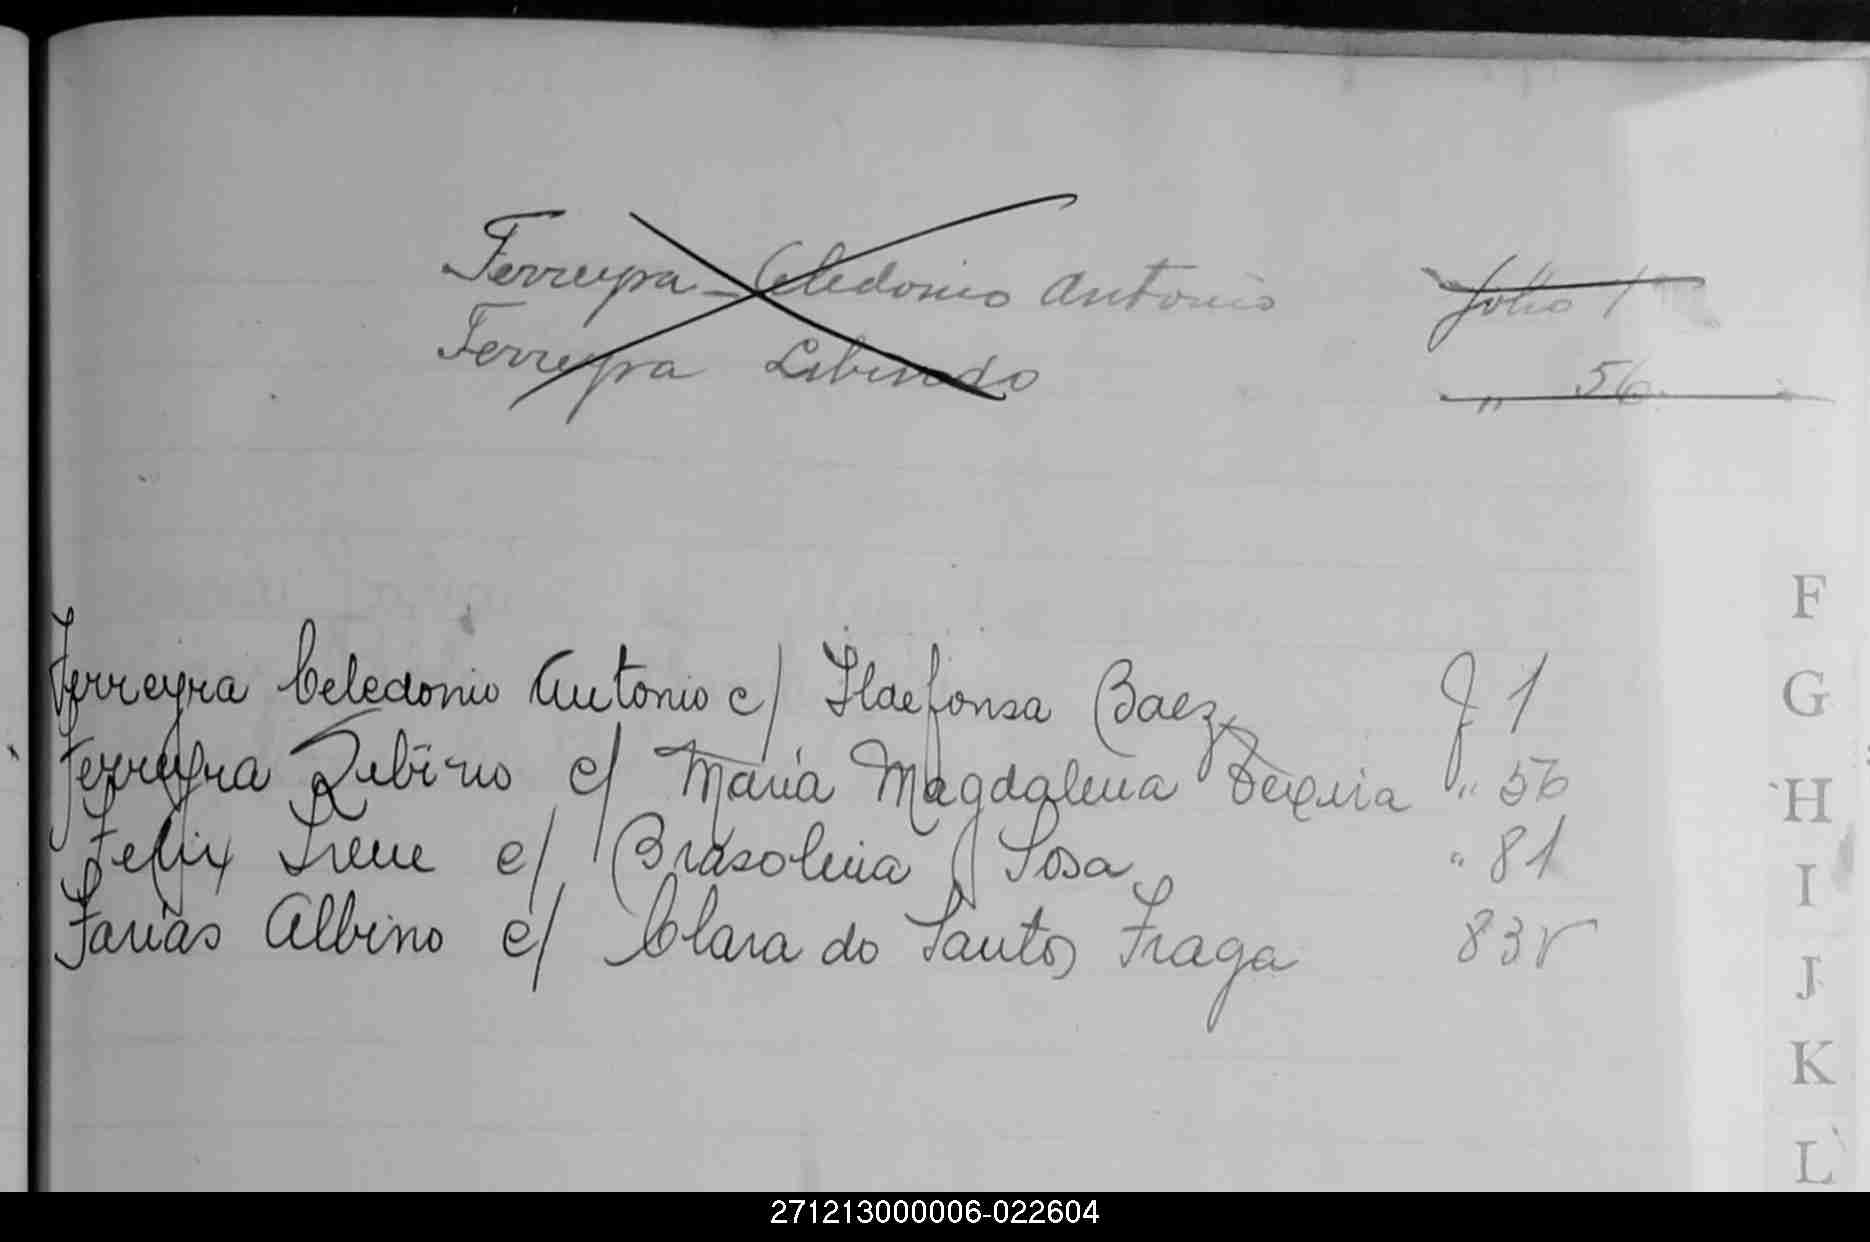 Ferreyra Celedonio Antonio folio 1
Ferreyra Libindo " 56
Ferreyra Celedonio Antonio c/ Ildefonsa Baez F 1
Ferreyra Libirio c/ Maria Magdalena Texeira " 56
Felix Irene c/ Brasolina Sosa " 81
Farias Albino c/ Clara do Santos Fraga 83v
F
G
H
I
J
K
L
271213000006-022604